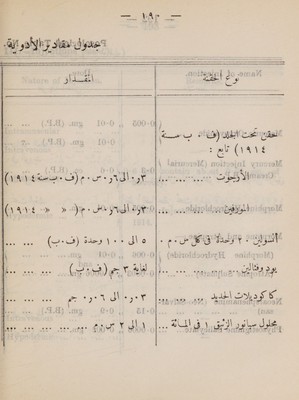 — ١٠٩ —
جدول مقادير الأدوية
نوع الحقنة	المقدار
حقن تحت الجلد (ف ٠ ب سنة
١٩١٤) تابع :
الأرجوت ... ... ... ٣ر٠ الى ٦ر٠ س ٠ م (ف ٠ ب سنة ١٩١٤)
المورفين ... ... ... ٣ر٠ الى ٦ر٠ س ٠ م ( » » ١٩١٤)
أنسولين ٢٠ وحدة فى كل س ٠ م ٠ ٥ الى ١٠٠ وحدة (ف ٠ ب)
يود وفتالين ... ... ... لغاية ٣ جم (ف ٠ ب)
كاكوديلات الحديد ... ... ٠٣ر٠ الى ٠٦ر٠ جم
محلول سيانور الزئبق ١ فى المائة ... ١ الى ٢ س ٠ م